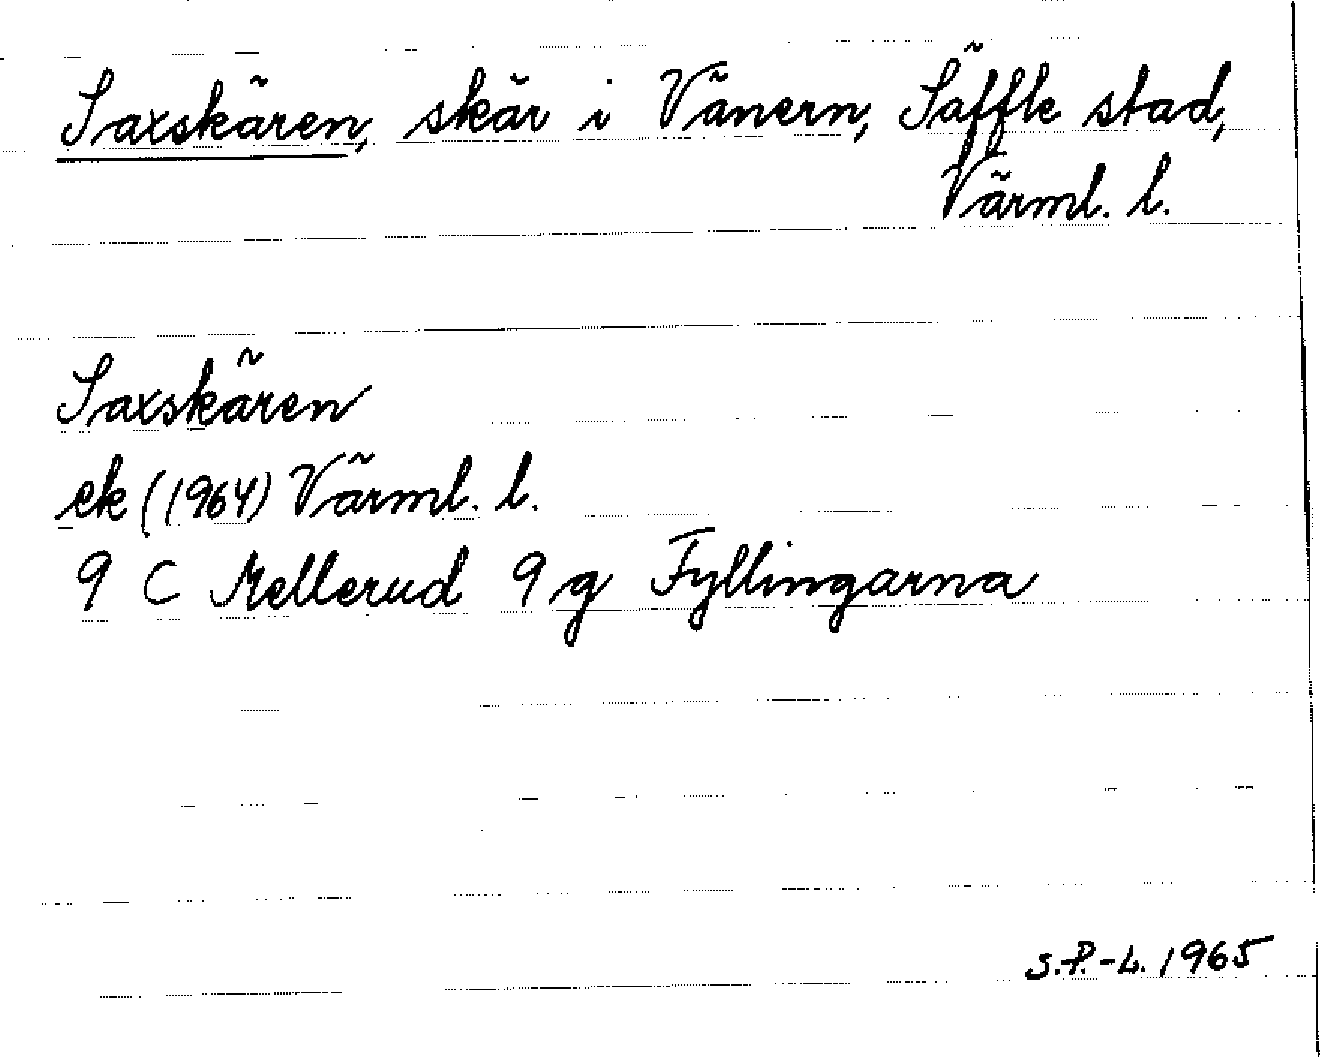 Saxskären, skär i Vänern, Säffle stad,
Värml. l.
Saxskären
ek (1964) Värml. l.
9 C Mellerud 9 g Fyllingarna
S.P.-L. 1965